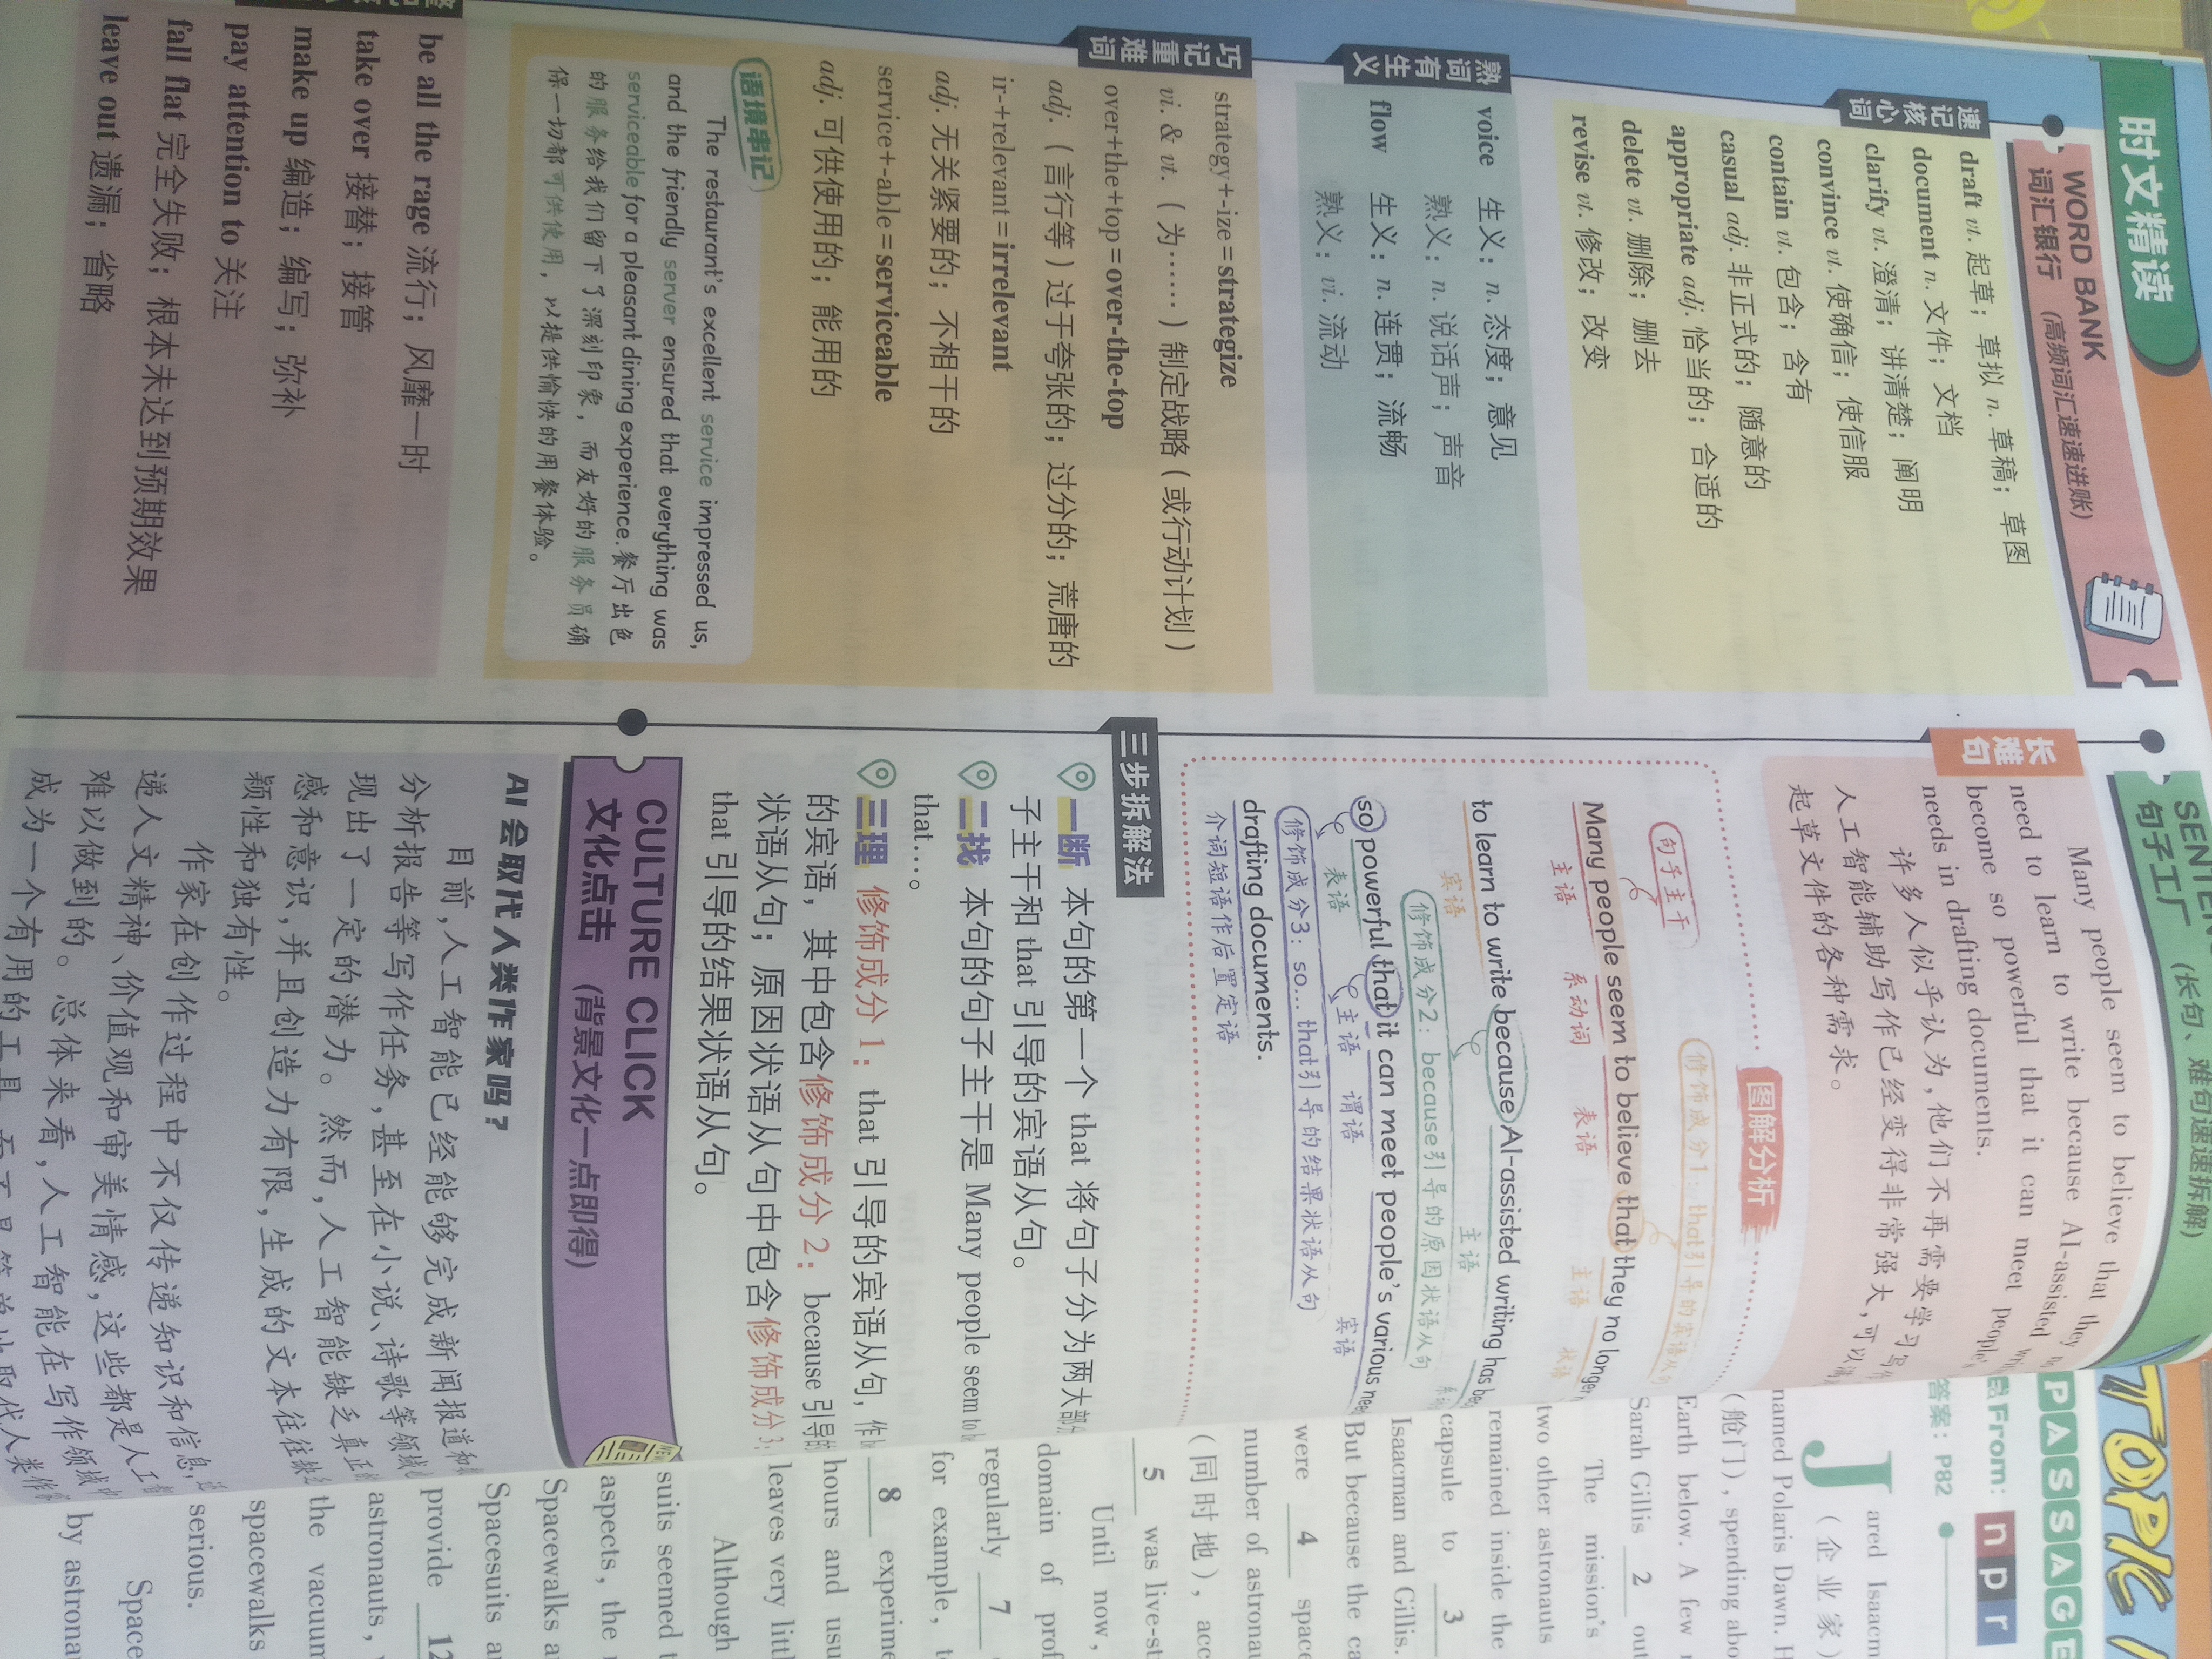 时文精读
WORD BANK
词汇银行 (高频词汇速速进账)
速记核心词
draft vt. 起草；草拟 n. 草稿；草图
document n. 文件；文档
clarify vt. 澄清；讲清楚；阐明
convince vt. 使确信；使信服
contain vt. 包含；含有
casual adj. 非正式的；随意的
appropriate adj. 恰当的；合适的
delete vt. 删除；删去
revise vt. 修改；改变
熟词有生义
voice 生义：n. 态度；意见
熟义：n. 说话声；声音
flow 生义：n. 连贯；流畅
熟义：vi. 流动
巧记重难词
strategy+-ize=strategize
vi. & vt.（为……）制定战略（或行动计划）
over+the+top=over-the-top
adj.（言行等）过于夸张的；过分的；荒唐的
ir-+relevant=irrelevant
adj. 无关紧要的；不相干的
service+-able=serviceable
adj. 可供使用的；能用的
语境串记
The restaurant's excellent service impressed us,
and the friendly server ensured that everything was
serviceable for a pleasant dining experience. 餐厅出色
的服务给我们留下了深刻印象，而友好的服务员确
保一切都可供使用，以提供愉快的用餐体验。
be all the rage 流行；风靡一时
take over 接替；接管
make up 编造；编写；弥补
pay attention to 关注
fall flat 完全失败；根本未达到预期效果
leave out 遗漏；省略
句子工厂 (长句、难句速速拆解)
长难句
Many people seem to believe that they
need to learn to write because AI-assisted
become so powerful that it can meet people's
needs in drafting documents.
许多人似乎认为，他们不再需要学习写
人工智能辅助写作已经变得非常强大，可以
起草文件的各种需求。
图解分析
句子主干
修饰成分1：that引导的宾语从句
Many people seem to believe that they no longer
主语 系动词 表语 主语 状语
to learn to write because AI-assisted writing has
宾语 主语
修饰成分2：because引导的原因状语从句
so powerful that it can meet people's various
表语 主语 谓语 宾语
修饰成分3：so…that引导的结果状语从句
drafting documents.
介词短语作后置定语
三步拆解法
一断 本句的第一个 that 将句子分为两大部分
子主干和 that 引导的宾语从句。
二找 本句的句子主干是 Many people seem to
that…。
三理 修饰成分 1：that 引导的宾语从句，作
的宾语，其中包含修饰成分 2：because 引导的
状语从句；原因状语从句中包含修饰成分 3：
that 引导的结果状语从句。
CULTURE CLICK
文化点击 (背景文化一点即得)
AI 会取代人类作家吗？
目前，人工智能已经能够完成新闻报道和
分析报告等写作任务，甚至在小说、诗歌等领域
现出了一定的潜力。然而，人工智能缺乏真正
感和意识，并且创造力有限，生成的文本往往缺
颖性和独有性。
作家在创作过程中不仅传递知识和信息，
递人文精神、价值观和审美情感，这些都是人工
难以做到的。总体来看，人工智能在写作领域
成为一个有用的工具，而不是简单地取代人类
TOPIC
PASSAGE
From: npr
答案：P82
Jared Isaacm
（企业家）
named Polaris Dawn. H
（舱门），spending abo
Earth below. A few
Sarah Gillis 2 out
The mission's
two other astronauts
remained inside the
capsule to 3
Isaacman and Gillis.
But because the ca
were 4 space
number of astronau
（同时地），acc
5 was live-st
Until now,
domain of prof
regularly 7
for example, t
8 experime
hours and usu
leaves very littl
Although
suits seemed t
aspects, the
Spacewalks a
Spacesuits a
provide 12
astronauts,
the vacuum
spacewalks
serious.
Space
by astrona